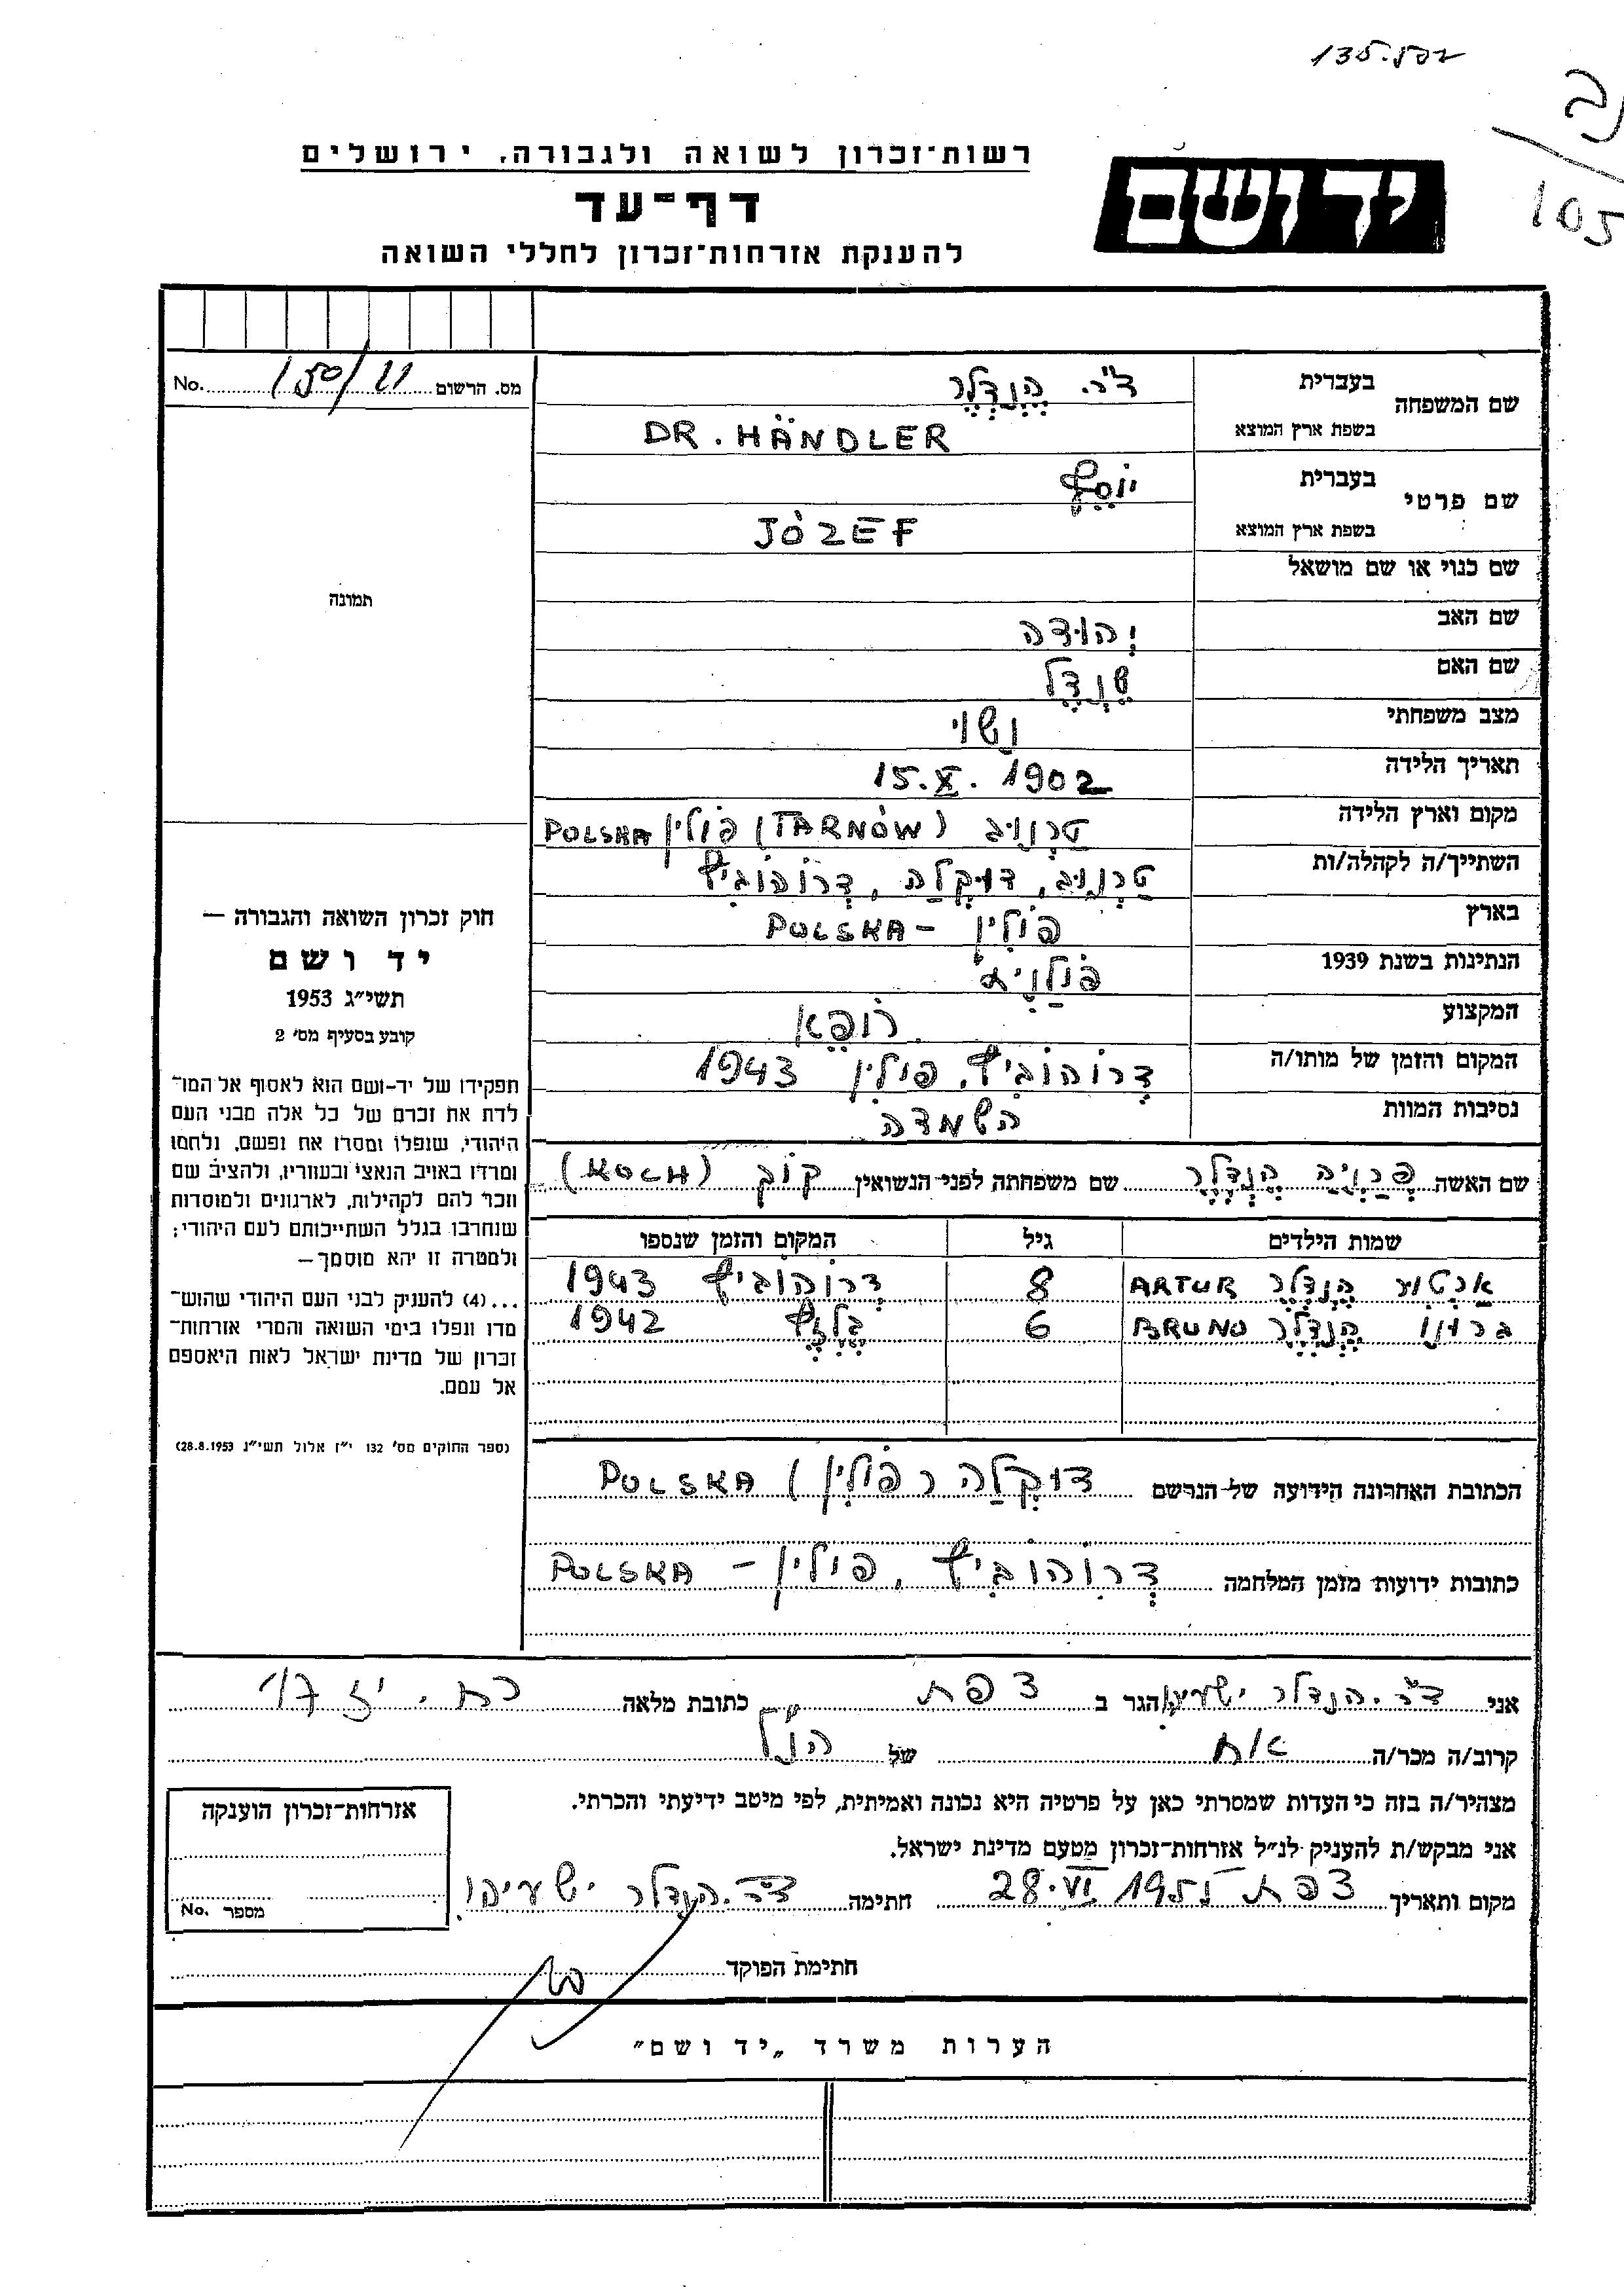 135.502
ב/105
ידושם
רשות־זכרון לשואה ולגבורה, ירושלים
דף־עד
להענקת אזרחות־זכרון לחללי השואה
מס. הרשום No.
שם המשפחה
בעברית ד"ר. הֶנְדְלֶר
בשפת ארץ המוצא DR. HÄNDLER
שם פרטי
בעברית יוֹסֵף
בשפת ארץ המוצא JÓZEF
שם כנוי או שם מושאל
תמונה
שם האב יְהוּדה
שם האם שֶנְדֶל
מצב משפחתי נשוי
תאריך הלידה 15.X.1902
מקום וארץ הלידה טרנוב (TARNÓW) פולין POLSKA
השתייך/ה לקהלה/ות טרנוב, דוקלה, דרוהוביץ
בארץ פולין – POLSKA
הנתינות בשנת 1939 פולנית
המקצוע רופא
המקום והזמן של מותו/ה דרוהוביץ, פולין 1943
נסיבות המוות השמדה
חוק זכרון השואה והגבורה —
יד ושם
תשי״ג 1953
קובע בסעיף מס׳ 2
תפקידו של יד-ושם הוא לאסוף אל המו־
לדת את זכרם של כל אלה מבני העם
היהודי, שנפלו ומסרו את נפשם, נלחמו
ומרדו באויב הנאצי ובעוזריו, ולהציב שם
וזכר להם לקהילות, לארגונים ולמוסדות
שנחרבו בגלל השתייכותם לעם היהודי;
ולמטרה זו יהא מוסמך—
...(4) להענקת לבני העם היהודי שהוש־
מדו ונפלו בימי השואה והמרי אזרחות־
זכרון של מדינת ישראל לאות היאספם
אל עמם.
(ספר החוקים מס׳ 132 י״ז אלול תשי״ג 28.8.1953)
שם האשה הֶנְדְלֶר שם משפחתה לפני הנשואין קוֹךְ (KOCH)
שמות הילדים גיל המקום והזמן שנספו
ארטור הנדלר ARTUR 8 דרוהוביץ 1943
ברונו הנדלר BRUNO 6 בלזץ 1942
הכתובת האחרונה הידועה של הנרשם דוקלה (פולין) POLSKA
כתובות ידועות מזמן המלחמה דרוהוביץ, פולין – POLSKA
אני ד"ר. הנדלר ישעיהו הגר ב צפת כתובת מלאה
קרוב/ה מכר/ה אח של הנ"ל
מצהיר/ה בזה כי העדות שמסרתי כאן על פרטיה היא נכונה ואמיתית, לפי מיטב ידיעתי והכרתי.
אני מבקש/ת להעניק לנ״ל אזרחות־זכרון מטעם מדינת ישראל.
מקום ותאריך צפת 28.VI 1955 חתימה ד"ר. הנדלר ישעיהו
חתימת הפוקד
אזרחות־זכרון הוענקה
מספר No.
הערות משרד „יד ושם״